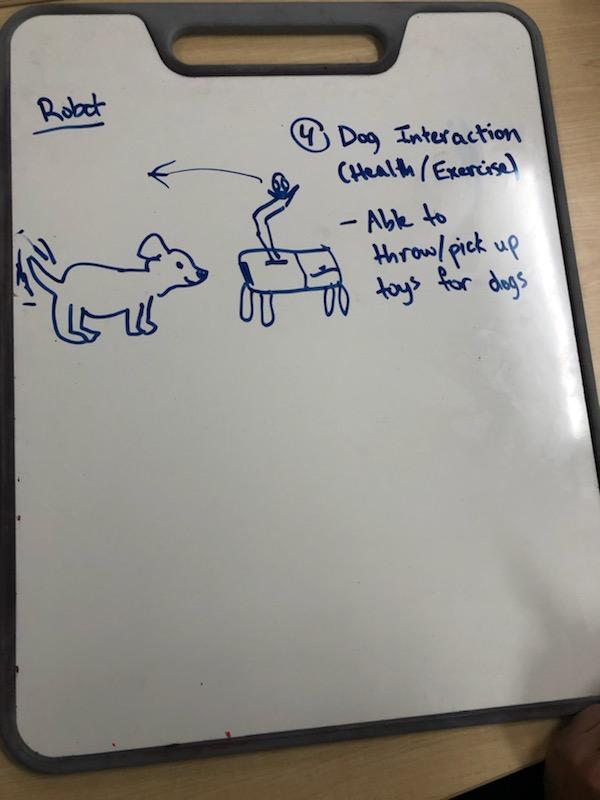 Robot
④ Dog Interaction
(Health/Exercise)
- Able to
throw/pick up
toys for dogs